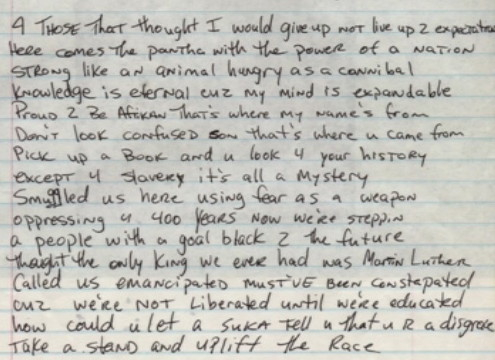 4 THOSE THAT thought I would give up NOT live up 2 expectation
Here comes the pantha with the power of a NATION
STRONG like an animal hungry as a cannibal
knowledge is eternal cuz my mind is expandable
Proud 2 Be AfRIKAN THAT'S where my name's from
Don't look confused son that's where u came from
Pick up a Book and u look 4 your history
except 4 slavery it's all a mystery
Smuggled us here using fear as a weapon
oppressing 4 400 years NOW we're STEPPIN
a people with a goal black 2 the future
thought the only King we ever had was Martin Luther
Called us emancipated must've BEEN constapated
cuz we're NOT Liberated until we're educated
how could u let a SUKA Tell u that u R a disgrace
Take a stand and uplift the Race